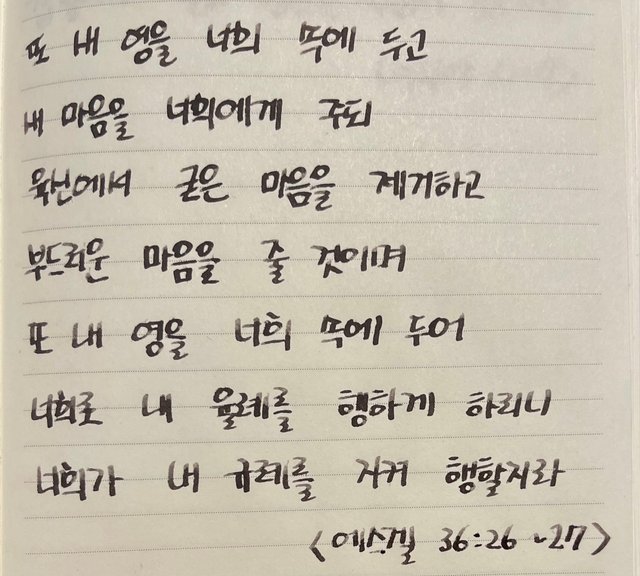 또 내 영을 너희 속에 두고
새 마음을 너희에게 주되
육신에서 굳은 마음을 제거하고
부드러운 마음을 줄 것이며
또 내 영을 너희 속에 두어
너희로 내 율례를 행하게 하리니
너희가 내 규례를 지켜 행할지라
<에스겔 36:26 ~27>